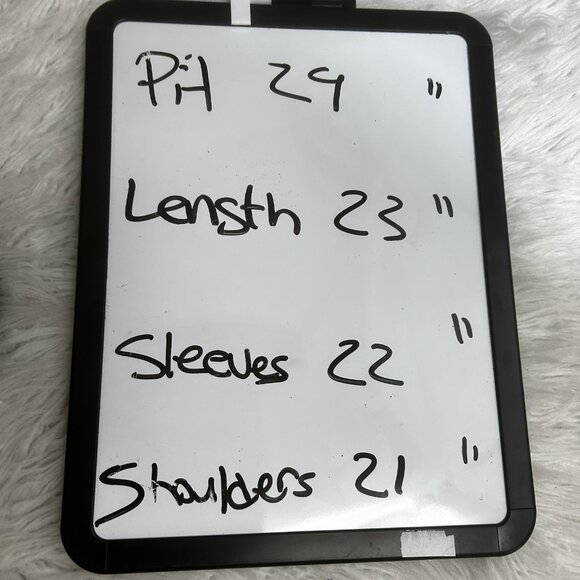 Pit 24 "
Length 23 "
Sleeves 22 "
Shoulders 21 "